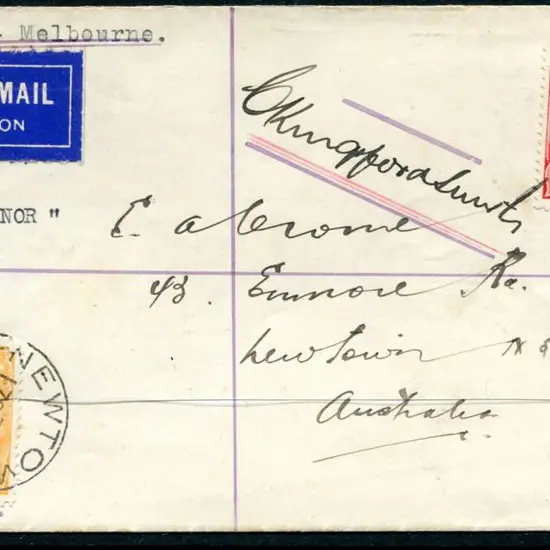 - Melbourne.
MAIL
ON
CKingsfordSmith
NOR "
E. A. Crome
43. Enmore Rd.
Newtown N S
Australia
NEWTO